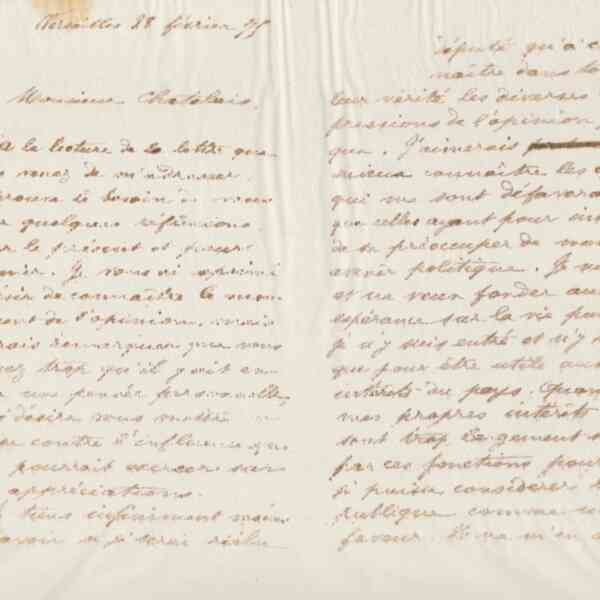 Versailles 28 février 75
Monsieur Chatelais,
A la lecture de la lettre que
venez de m'adresser,
le besoin de vous
quelques réflexions
le présent et
Je vous ai exprimé
de connaître le mou
ment de l'opinion, mais
remarquer que vous
trop qu'il soit en
une pensée personnelle,
désire vous mettre
contre l'influence que
pourrait exercer sur
appréciations.
tiens infiniment moins
savoir si je serai réélu
député qu'à c
naître dans to
leur vérité les diverses
pressions de l'opinion p
que. J'aimerais
mieux connaître les
qui me sont défavora
que celles ayant pour
de se préoccuper de mon
avenir politique. Je n
et ne veux fonder au
espérance sur la vie pu
je n'y suis entré et n'y
que pour être utile aux
intérêts du pays. Quan
mes propres intérêts
sont trop
par ces fonctions pour
je puisse considérer
publique comme un
faveur. Il va m'en